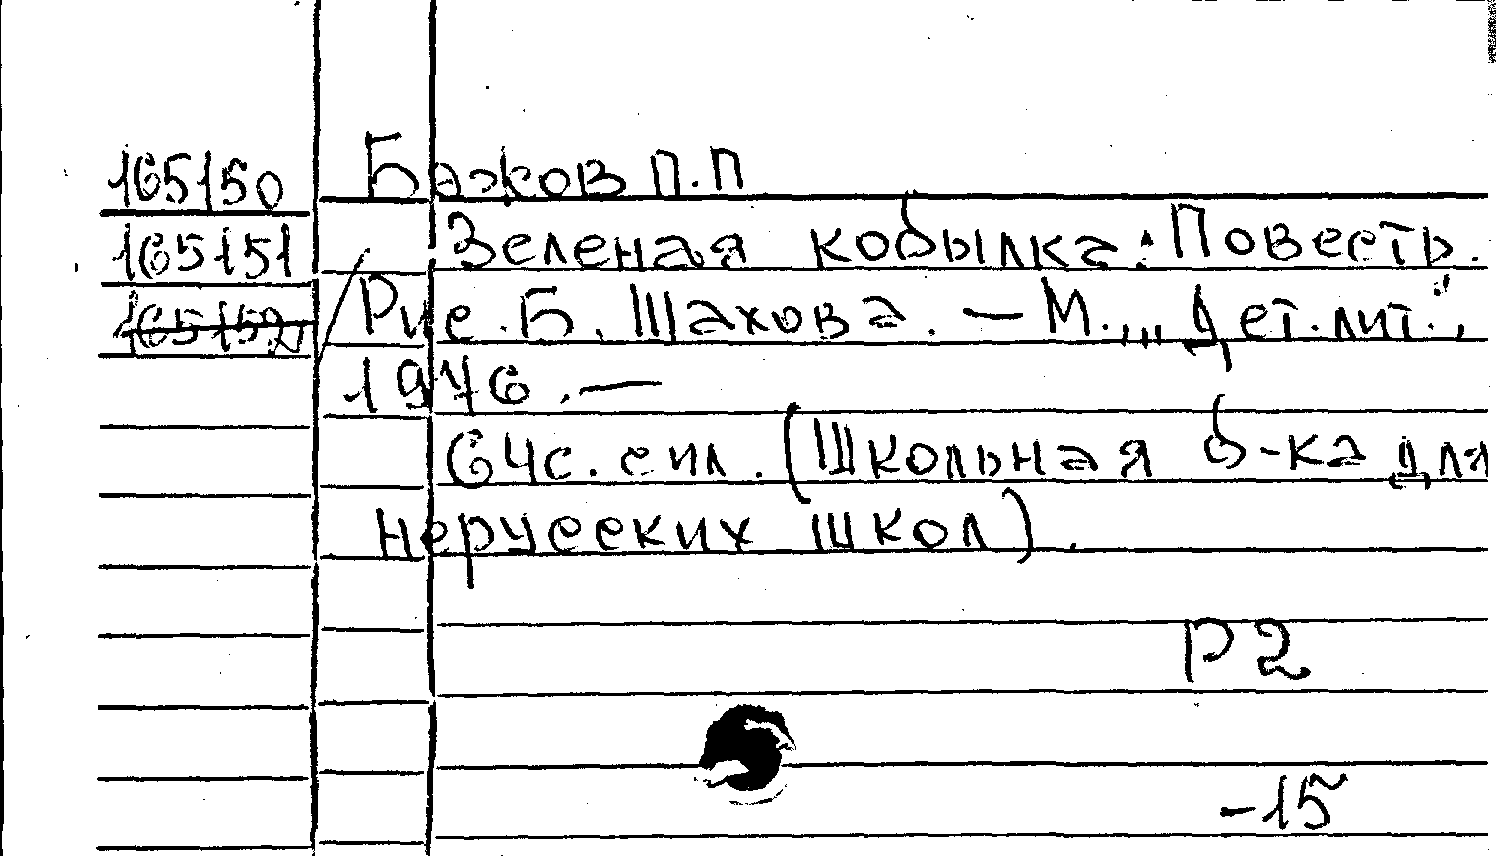 165150 Бажов П.П
165151 Зеленая кобылка: Повесть.
165152 Рис. Б. Шахова. — М.: „Дет. лит.",
1976. —
64с. с ил. (Школьная б-ка для
нерусских школ).
Р2
-15